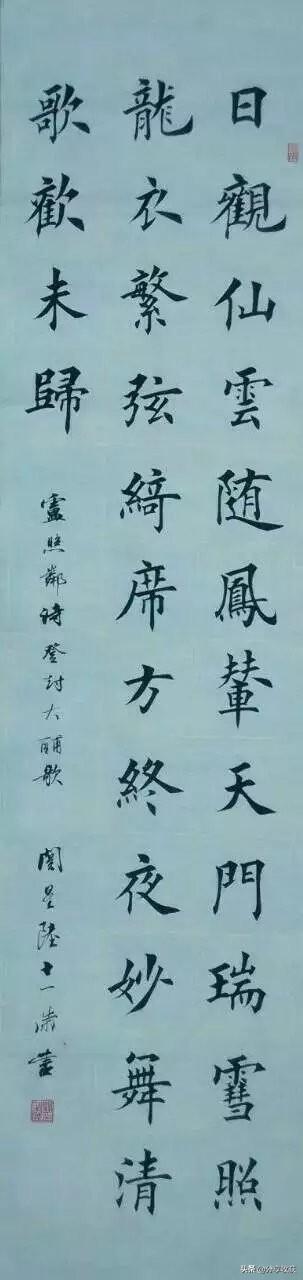 日觀仙雲随鳳輦天門瑞雪照
龍衣繁弦綺席方終夜妙舞清
歌歡未歸
盧照鄰詩登封大酺歌
陸十一 書
头条@分享收获